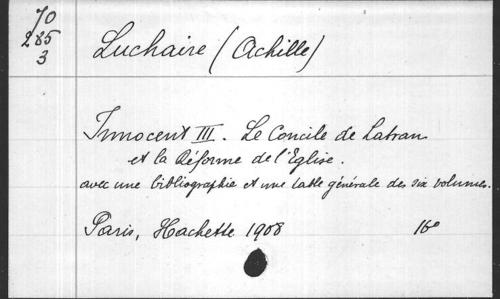 70
285
3
Luchaire (Achille)
Innocent III. Le Concile de Latran
et la Réforme de l'Eglise.
avec une bibliographie et une table générale des six volumes.
Paris, Hachette 1908 16°